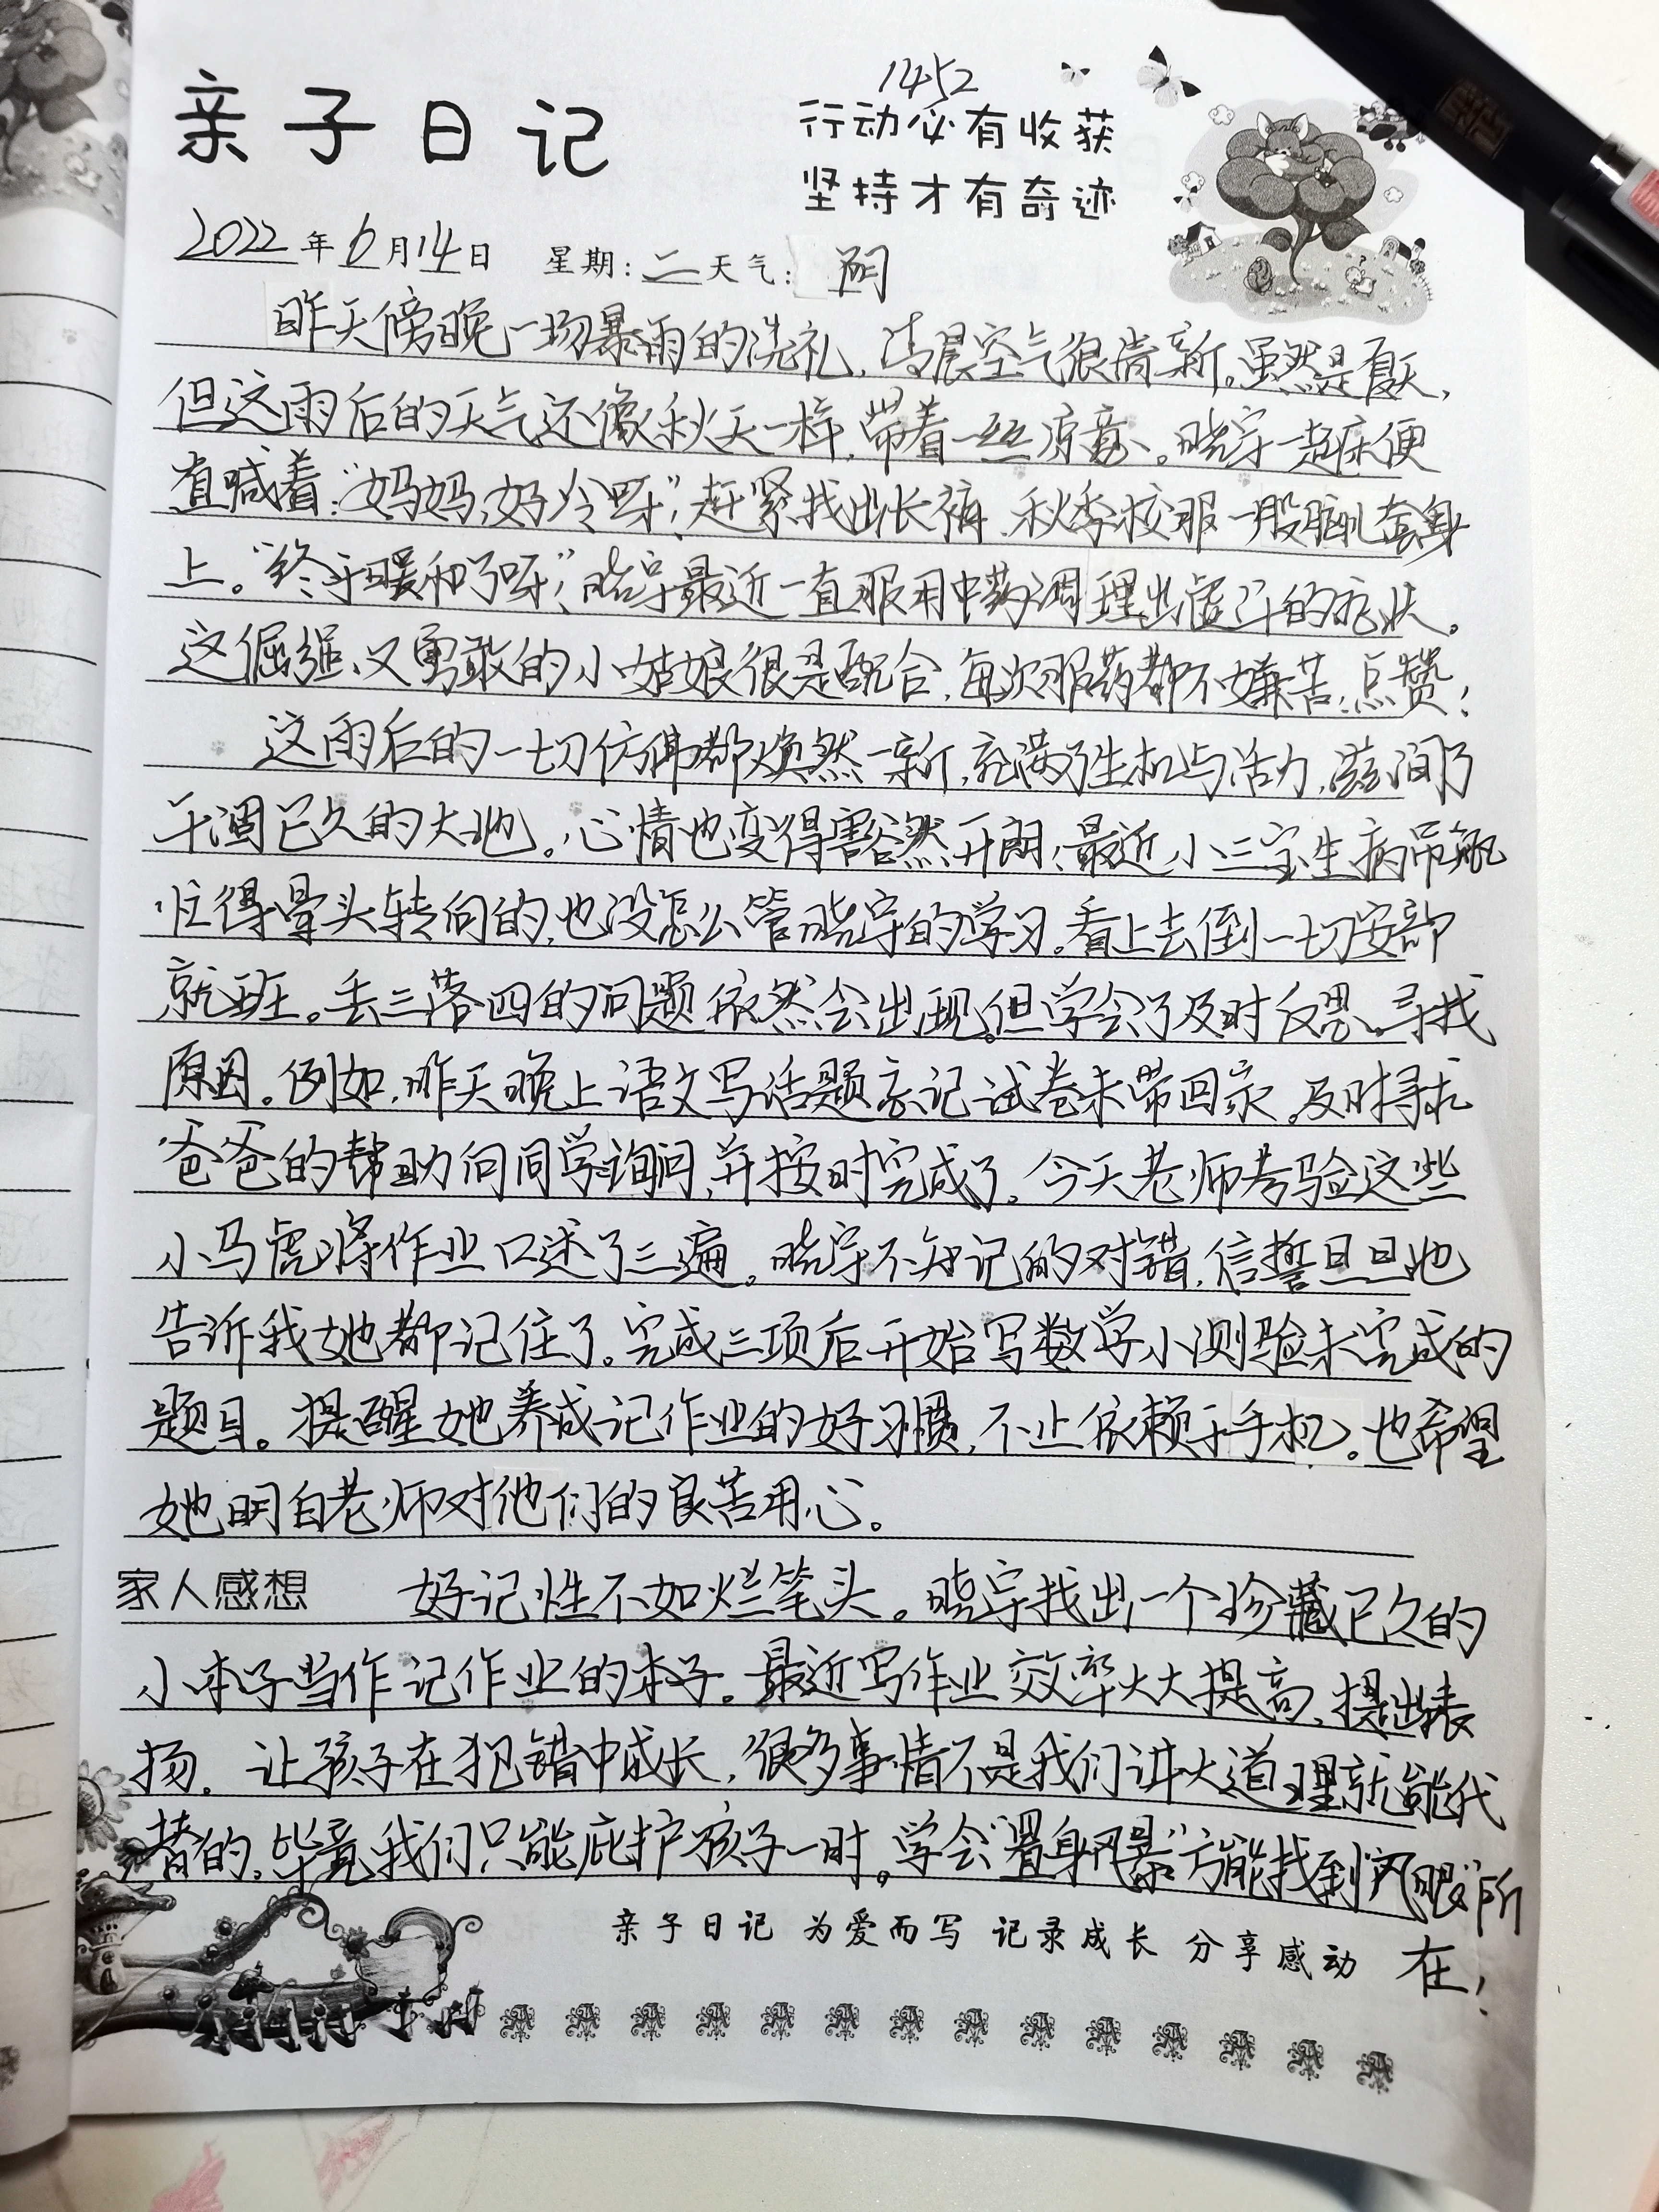 1452
亲子日记
行动必有收获
坚持才有奇迹
2022年6月14日 星期:二天气: 阴
昨天傍晚一场暴雨的洗礼,清晨空气很清新。虽然是夏天,
但这雨后的天气还像秋天一样,带着一丝凉意。晓宇一起床便
直喊着:“妈妈,好冷呀”,赶紧找出长裤、秋季校服一股脑儿套身
上。“终于暖和了呀”,晓宇最近一直服用中药调理出虚汗的症状。
这倔强、又勇敢的小姑娘很是配合,每次服药都不嫌苦,点赞!
这雨后的一切仿佛都焕然一新,充满了生机与活力,滋润了
干涸已久的大地。心情也变得豁然开朗,最近小三宝生病吊瓶
忙得晕头转向的,也没怎么管晓宇的学习。看上去倒一切安部
就班。丢三落四的问题依然会出现,但学会了及时反思、寻找
原因。例如,昨天晚上语文写话题忘记试卷未带回家,及时寻求
爸爸的帮助向同学询问,并按时完成了。今天老师考验这些
小马虎将作业口述了三遍。晓宇不知记的对错,信誓旦旦地
告诉我她都记住了。完成三项后开始写数学小测验未完成的
题目。提醒她养成记作业的好习惯,不止依赖于手机。也希望
她明白老师对他们的良苦用心。
家人感想 好记性不如烂笔头。晓宇找出一个珍藏已久的
小本子当作记作业的本子。最近写作业效率大大提高,提出表
扬。让孩子在犯错中成长,很多事情不是我们讲大道理就能代
替的,毕竟我们只能庇护孩子一时。学会“置身风暴”方能找到“风眼”所
在!
亲子日记 为爱而写 记录成长 分享感动